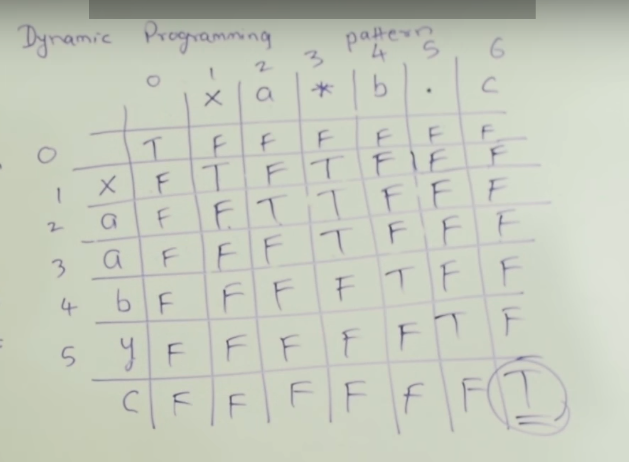 Dynamic Programming pattern
0 1 2 3 4 5 6
x a * b . c
0 T F F F F F F
1 x F T F T F F F
2 a F F T T F F F
3 a F F F T F F F
4 b F F F F T F F
5 y F F F F F T F
c F F F F F F T